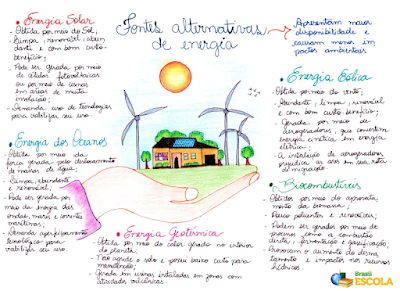 Fontes alternativas
de energia
Apresentam maior
disponibilidade e
causam menos im
pactos ambientais.
• Energia Solar
- Obtida por meio do Sol;
- Limpa, renovável, abun
dante e com bom custo-
benefício;
- Pode ser gerada por meio
de células fotovoltaicas
ou por meio de usinas
em áreas de muita
insolação;
- Demanda uso de tecnologias
para viabilizar seu uso.
• Energia dos Oceanos
- Obtida por meio da
força gerada pelo deslocamento
de massas de água;
- Limpa, abundante
e renovável;
- Pode ser gerada por
meio da energia das
ondas, marés e correntes
marítimas;
- Demanda aperfeiçoamento
tecnológico para
viabilizar seu uso.
• Energia Geotérmica
- Obtida por meio do calor gerado no interior
do planeta;
- Não agride o solo e possui baixo custo para
manutenção;
- Gerada em usinas instaladas em zonas com
atividades vulcânicas.
• Energia Eólica
- Obtida por meio do vento;
- Abundante, limpa, renovável
e com bom custo-benefício;
- Gerada por meio de
aerogeradores, que convertem
energia cinética em energia
elétrica;
- A instalação de aerogeradores
prejudica as aves em sua rota
de migração.
• Biocombustíveis
- Obtidos por meio do aproveita
mento da biomassa;
- Pouco poluentes e renováveis;
- Podem ser gerados por meio de
processos como a combustão
direta, fermentação e gaseificação;
- Provocam o aumento do desma
tamento e impactos nos recursos
hídricos.
Brasil
ESCOLA